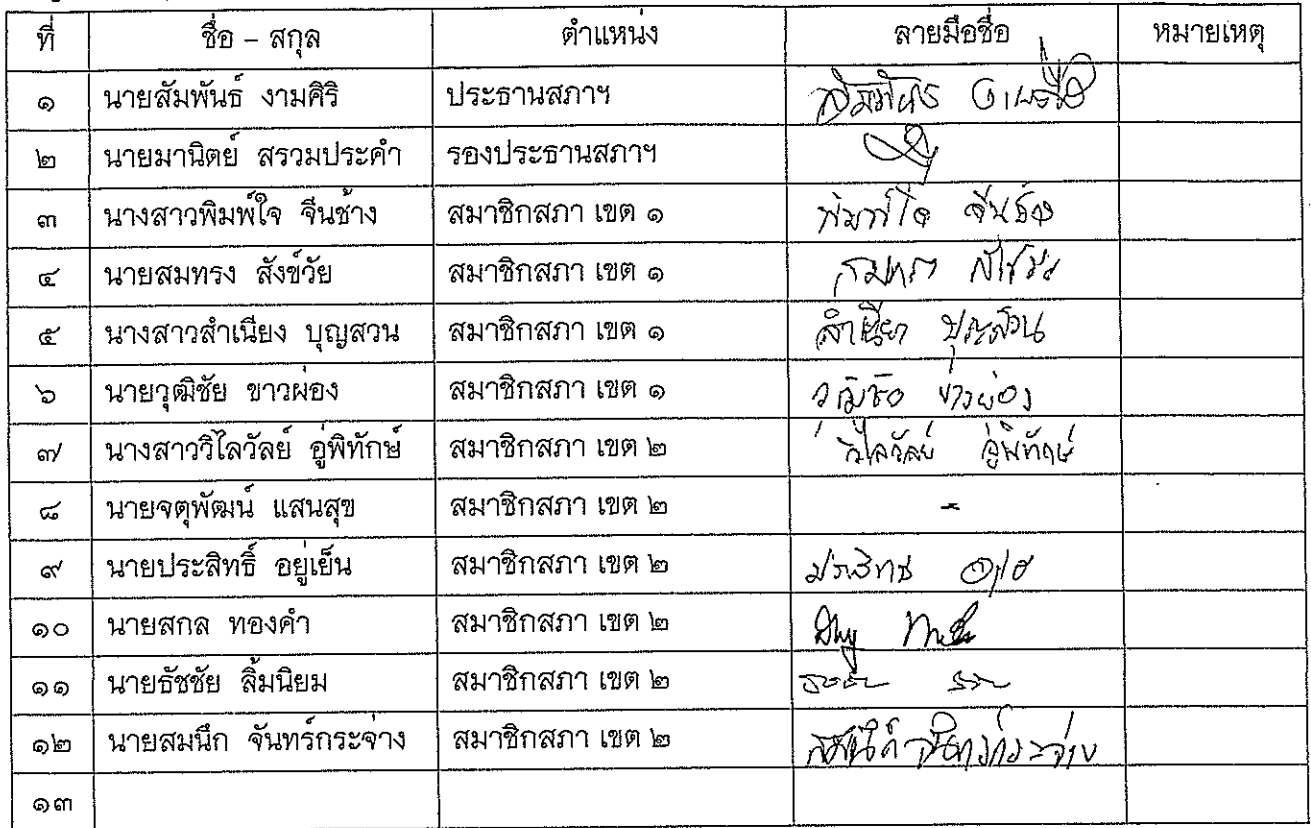 ที่ ชื่อ – สกุล ตำแหน่ง ลายมือชื่อ หมายเหตุ
๑ นายสัมพันธ์ งามศิริ ประธานสภาฯ
๒ นายมานิตย์ สรวมประคำ รองประธานสภาฯ
๓ นางสาวพิมพ์ใจ จีนช้าง สมาชิกสภา เขต ๑ พิมพ์ใจ จีนช้าง
๔ นายสมทรง สังข์วัย สมาชิกสภา เขต ๑
๕ นางสาวสำเนียง บุญสวน สมาชิกสภา เขต ๑ สำเนียง บุญสวน
๖ นายวุฒิชัย ขาวผ่อง สมาชิกสภา เขต ๑ วุฒิชัย ขาวผ่อง
๗ นางสาววิไลวัลย์ อู่พิทักษ์ สมาชิกสภา เขต ๒ วิไลวัลย์ อู่พิทักษ์
๘ นายจตุพัฒน์ แสนสุข สมาชิกสภา เขต ๒ -
๙ นายประสิทธิ์ อยู่เย็น สมาชิกสภา เขต ๒
๑๐ นายสกล ทองคำ สมาชิกสภา เขต ๒
๑๑ นายธัชชัย ลิ้มนิยม สมาชิกสภา เขต ๒
๑๒ นายสมนึก จันทร์กระจ่าง สมาชิกสภา เขต ๒ สมนึก จันทร์กระจ่าง
๑๓